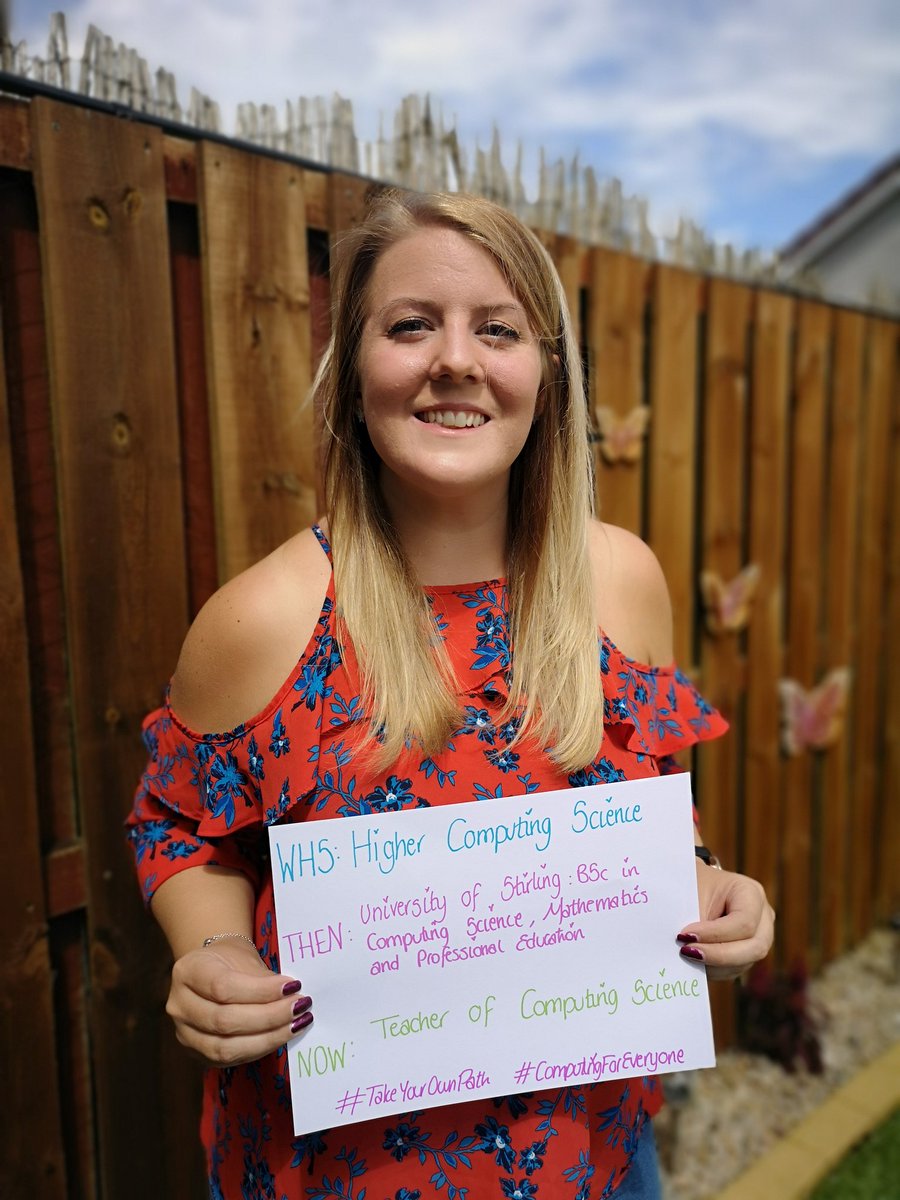 WHS: Higher Computing Science
THEN: University of Stirling: BSc in
Computing Science, Mathematics
and Professional Education
NOW: Teacher of Computing Science
#TakeYourOwnPath #ComputingForEveryone